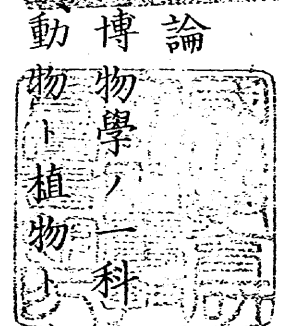 論
博物學ノ一科
動物ト植物ト